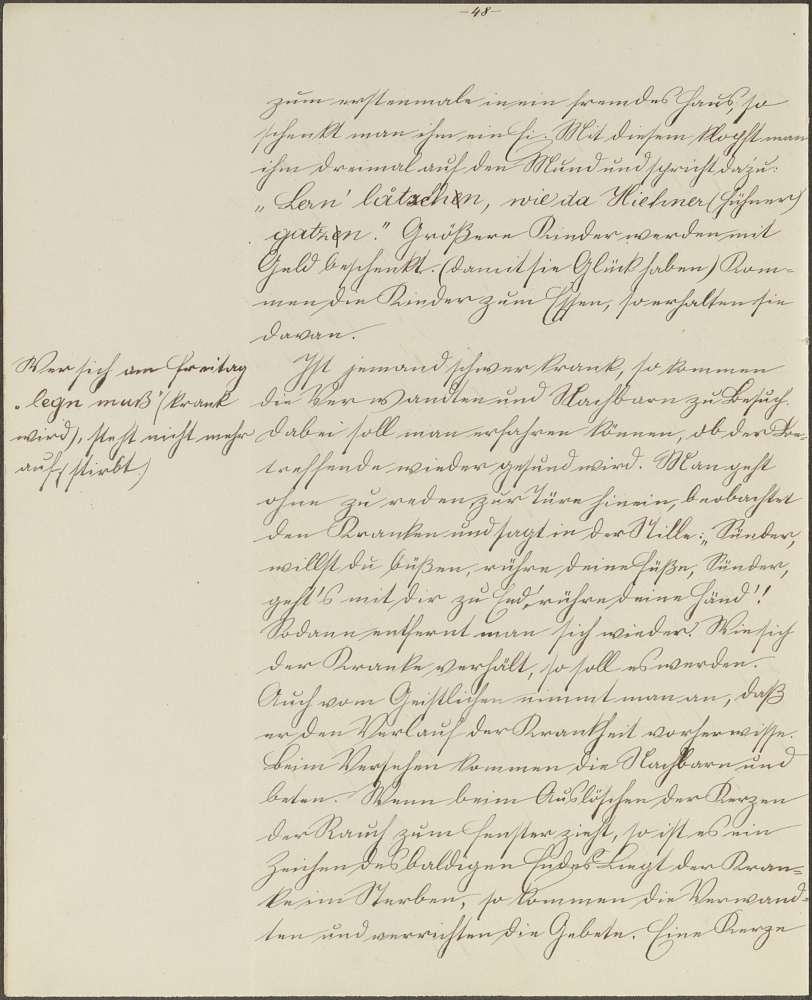 -48-
zum erstenmale in ein fremdes Haus, so
schenkt man ihm ein Ei. Mit diesem klopft man
ihm dreimal auf den Mund und spricht dazu:
„Lern' låtschen, wie da Hiehner (Hühner)
gatzen." Größere Kinder werden mit
Geld beschenkt. (damit sie Glück haben) Kom-
men die Kinder zum Essen, so erhalten sie
davon.
Wer sich am Freitag
„legn muß" (krank
wird), steht nicht mehr
auf, (stirbt.)
Ist jemand schwer krank, so kommen
die Verwandten und Nachbarn zu Besuch.
Dabei soll man erfahren können, ob der Be-
treffende wieder gesund wird. Man geht
ohne zu reden, zur Türe hinein, beobachtet
den Kranken und sagt in der Stille: „Sünder,
willst du büßen, rühre deine Füße, Sünder,
geht's mit dir zu End', rühre deine Händ'!
Sodann entfernt man sich wieder. Wie sich
der Kranke verhält, so soll es werden.
Auch vom Geistlichen nimmt man an, daß
er den Verlauf der Krankheit vorher wisse.
Beim Versehen kommen die Nachbarn und
beten. Wenn beim Auslöschen der Kerzen
der Rauch zum Fenster zieht, so ist es ein
Zeichen des baldigen Endes. Liegt der Kran-
ke im Sterben, so kommen die Verwand-
ten und verrichten die Gebete. Eine Kerze